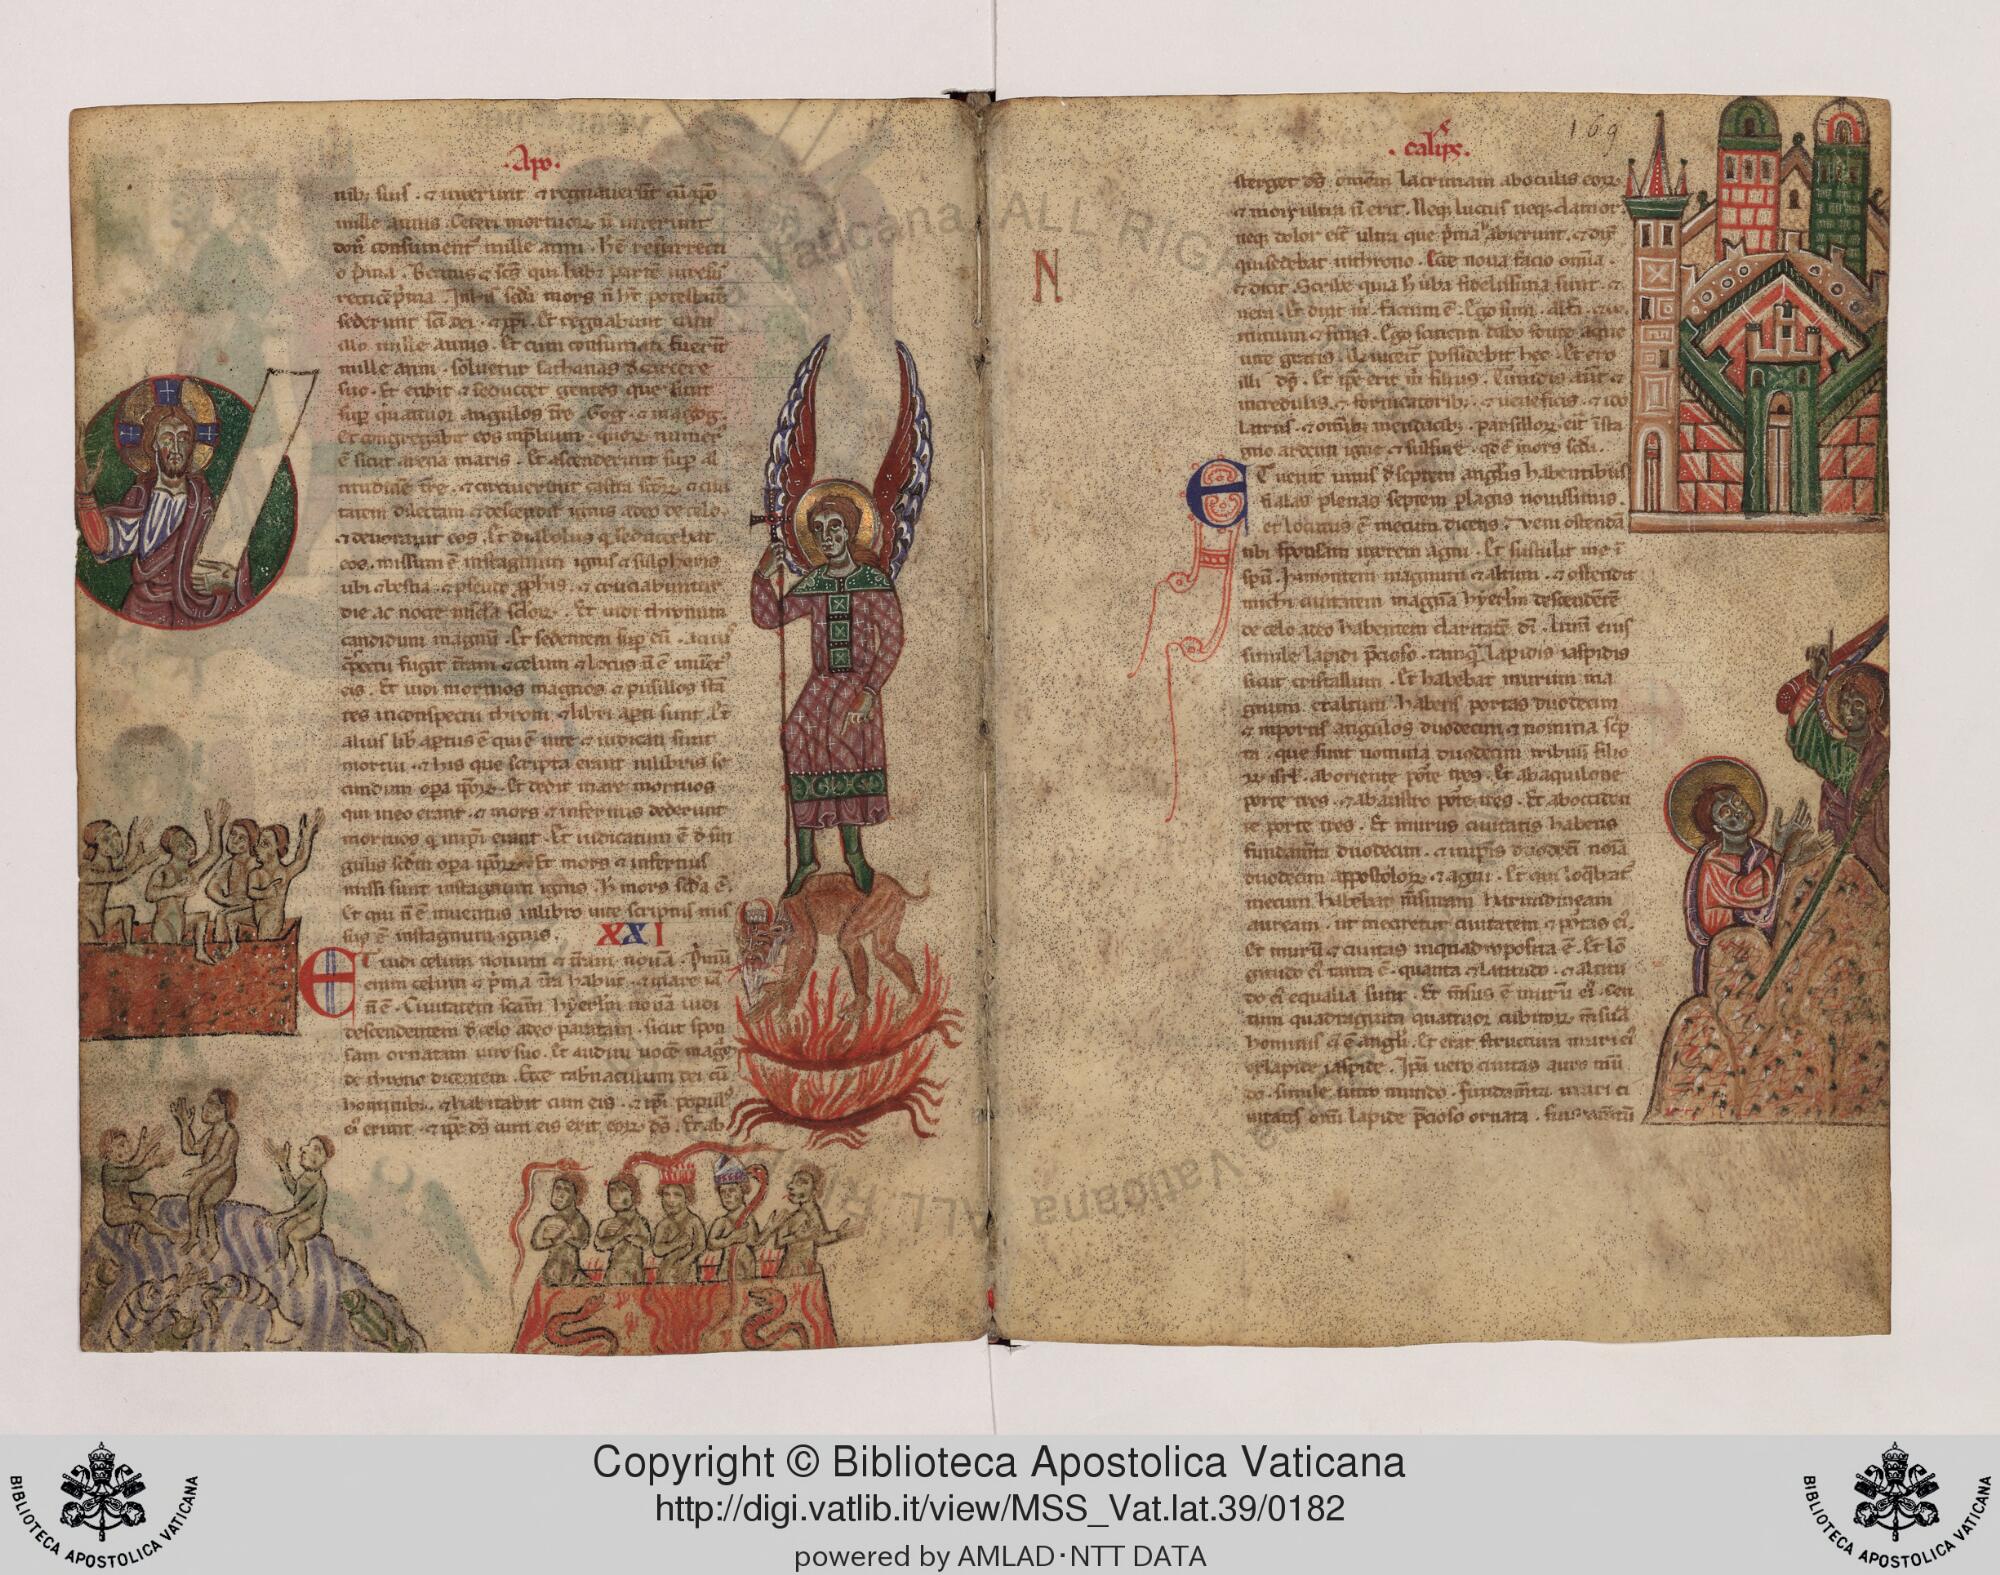 ·Apo·
nibꝫ suis · ⁊ uixerunt ⁊ regnauerunt cū xp̄o
mille annis. Ceteri mortuoꝝ n̄ uixerunt
donec consumentʳ mille anni · hec resurrecti
o p̄ma. Beatus ⁊ scs̄ qui habꝫ partē inresur
rectiōe p̄ma. In his scd̄a mors n̄ ht̄ potestatē
sederunt sci dei · ⁊ xp̄i · Et regnabunt cum
illo mille annis. Et cum consumati fuerint
mille anni · soluetur sathanas de carcere
suo · Et exibit ⁊ seducet gentes que sunt
sup̄ quattuor angulos tr̄e · Gog · ⁊ magog ·
Et congregabit eos inp̄lium · quoꝝ numerꝰ
ē sicut arena maris · Et ascenderunt sup̄ al
titudinē tr̄e · ⁊ circuierunt castra scōꝝ · ⁊ ciui
tatem dilectam ⁊ descendit ignis adeo de celo ·
⁊ deuorauit eos · Et diabolus q̄ seducebat
eos · missum ē instagnum ignis ⁊ sulphuris
ubi ⁊ bestia · ⁊ pseudo p̄phis · ⁊ cruciabuntur
die ac nocte in sc̄la sc̄loꝝ · Et uidi thronum
candidum magnū · Et sedentem sup̄ eū · acuiꝰ
9spectu fugit terram ⁊ celum ⁊ locus n̄ ē inuētꝰ
eis · Et uidi mortuos magnos ⁊ pusillos stā
tes inconspectu throni · ⁊ libri ap̄ti sunt · Et
alius lib̄ ap̄tus ē qui ē uite ⁊ iudicati sunt
mortui · ⁊ his que scripta erant inlibris se
cundum op̄a ip̄oꝝ · Et dedit mare mortuos
qui ineo erant · ⁊ mors ⁊ infernus dederunt
mortuos q̄ inip̄i erant · Et iudicatum ē d̄ sin
gulis scdm̄ op̄a ip̄oꝝ · Et mors ⁊ infernus
missi sunt instagnum ignis · H̄ mors scd̄a ē ·
Et qui n̄ ē inuentus inlibro uite scriptus mis
sus ē instagnum ignis · XXI
ET uidi celum nouum ⁊ terrā nouā · P̄mū
enim celum ⁊ p̄ma tr̄a habiit · ⁊ mare iā
n̄ ē · Ciuitatem scam̄ hyerlm̄ nouā uidi
descendentem d̄ celo adeo paratam · sicut spon
sam ornatam uiro suo · Et audiui uocē magnā
de throno dicentem · Ecce tabnaculum dei cū
hominibꝫ · ⁊ habitabit cum eis · ⁊ ip̄i populꝰ
eiꝰ erunt · ⁊ ip̄e ds̄ cum eis erit eoꝝ ds̄ · Et ab
· calips ·
169
sterget ds̄ omnem lacrimam aboculis eoꝝ ·
⁊ mors ultra n̄ erit · Neqꝫ luctus neqꝫ clamor ·
neqꝫ dolor erit ultra que p̄ma abierunt · ⁊ dix̄
quisedebat inthrono · Ecce noua facio omīa ·
⁊ dicit · Scribe quia h̄ uba fidelissima sunt · ⁊
uera · Et dixit m̄ · factum ē · Ego sum · alfa · ⁊ ω ·
initium ⁊ finis · Ego sitienti dabo fonte aque
uite gratis · Qui uicerit possidebit hec · Et ero
illi ds̄ · Et ip̄e erit m̄ filius · Timidis aut̄ ⁊
incredulis · ⁊ fornicatoribꝫ · ⁊ ueneficis · ⁊ ido
latris · ⁊ omībꝫ mendacibꝫ · pars illoꝝ erit īsta
gno ardenti igne ⁊ sulfure · qd̄ ē mors scd̄a ·
N
ET uenit unus d̄ septem angl̄is habentibus
fialas plenas septem plagis nouissimis ·
et locutus ē mecum dicens · ueni ostendā
tibi sponsam uxorem agni · Et sustulit me ī
spū · Inmontem magnum ⁊ altum · ⁊ ostendit
michi ciuitatem magnā hyerlm̄ descendētē
de celo adeo habentem claritatē dī · Lumē eius
simile lapidi p̄cioso · tanquā lapidis iaspidis
sicut cristallum · Et habebat murum ma
gnum et altum habens portas duodecim
⁊ inportis angulos duodecim ⁊ nomina scrip
ta · que sunt nomina duodecim tribuū filio
ꝝ isrl̄ · aboriente porte tres · Et abaquilone
porte tres · ⁊ abaustro porte tres · Et aboccidē
te porte tres · Et murus ciuitatis habens
fundamta duodecim · ⁊ inip̄is duodecī noīa
duodecim appostoloꝝ ⁊ agni · Et qui loq̄bat
mecum habebat m̄suram harundineam
auream · ut metiretur ciuitatem ⁊ portas eiꝰ ·
Et murū ⁊ ciuitas inquadro posita ē · Et lon
gitudo eiꝰ tanta ē · quanta ⁊ latitudo · ⁊ altitu
do eiꝰ equalia sunt · Et m̄sus ē murū eiꝰ · cen
tum quadraginta quattuor cubitoꝝ m̄sura
hominis q̄ ē angl̄i · Et erat structura muri eiꝰ
exlapide iaspide · Ip̄a uero ciuitas auro mū
do · simile uitro mundo · fundamta muri ci
uitatis omī lapide p̄cioso ornata · fundamtū
Vaticana ALL RIG
ALL RI
Vaticana
Copyright © Biblioteca Apostolica Vaticana
http://digi.vatlib.it/view/MSS_Vat.lat.39/0182
powered by AMLAD·NTT DATA
BIBLIOTECA APOSTOLICA VATICANA
BIBLIOTECA APOSTOLICA VATICANA